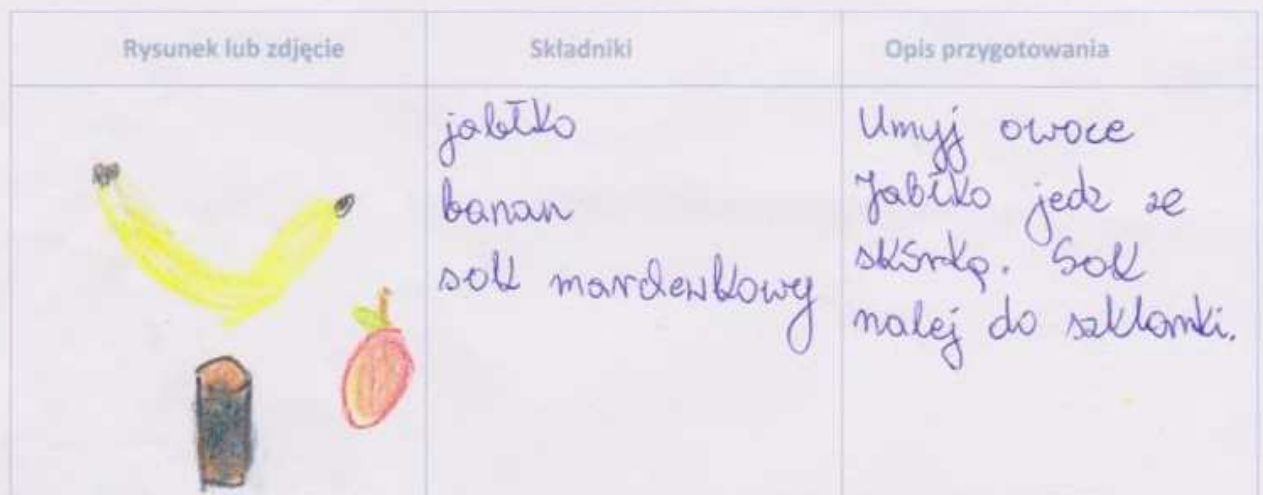 Rysunek lub zdjęcie
Składniki
Opis przygotowania
jabłko
banan
sok marchewkowy
Umyj owoce
Jabłko jedz ze
skórką. Sok
nalej do szklanki.